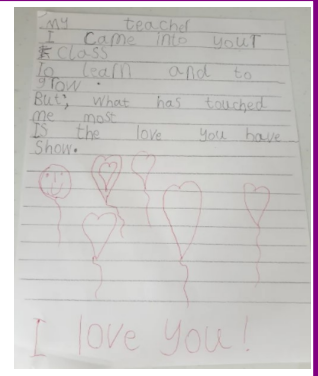 My teacher
I Came into youT
Class
To learn and to
grow.
But; what has touched
me most
IS the love you have
Show.
I love you!